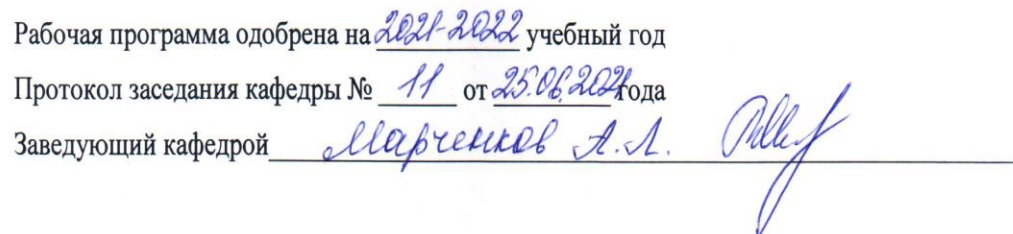 Рабочая программа одобрена на 2021-2022 учебный год
Протокол заседания кафедры № 11 от 25.06.2021 года
Заведующий кафедрой Марченков А.Л.